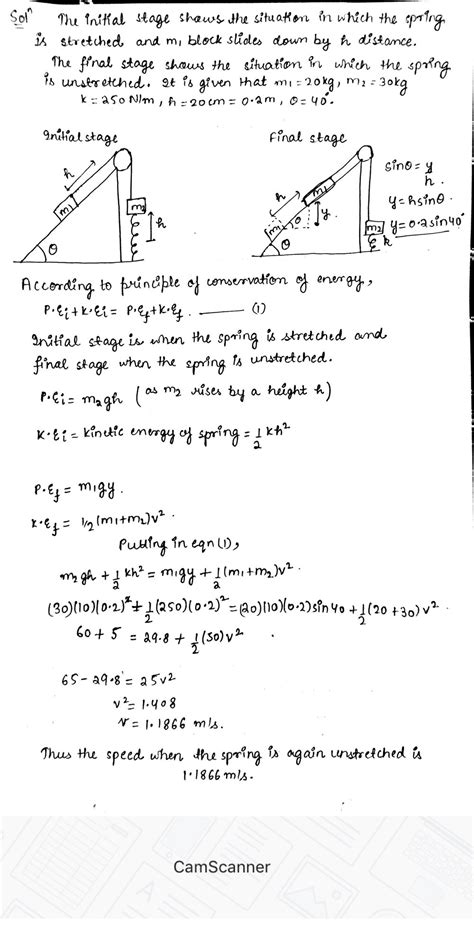 Solⁿ The initial stage shows the situation in which the spring
is stretched and m₁ block slides down by h distance.
The final stage shows the situation in which the spring
is unstretched. It is given that m₁ = 20kg, m₂ = 30kg
k = 250 N/m, h = 20cm = 0.2m, θ = 40°.
Initial stage
h
m₁
m₂
h
θ
Final stage
h
m₁
m₁
θ
y
θ
m₂
k
sinθ = y/h.
y = hsinθ.
y = 0.2sin40°
According to principle of conservation of energy,
P.Ei + K.Ei = P.Ef + K.Ef. —— (1)
Initial stage is when the spring is stretched and
final stage when the spring is unstretched.
P.Ei = m₂gh (as m₂ rises by a height h)
K.Ei = kinetic energy of spring = 1/2 kh²
P.Ef = m₁gy.
K.Ef = 1/2 (m₁+m₂)v².
Putting in eqn (1),
m₂gh + 1/2 kh² = m₁gy + 1/2 (m₁+m₂)v².
(30)(10)(0.2)² + 1/2 (250)(0.2)² = (20)(10)(0.2)sin40 + 1/2 (20+30)v².
60 + 5 = 29.8 + 1/2 (50)v²
65 - 29.8 = 25v²
v² = 1.408
v = 1.1866 m/s.
Thus the speed when the spring is again unstretched is
1.1866 m/s.
CamScanner